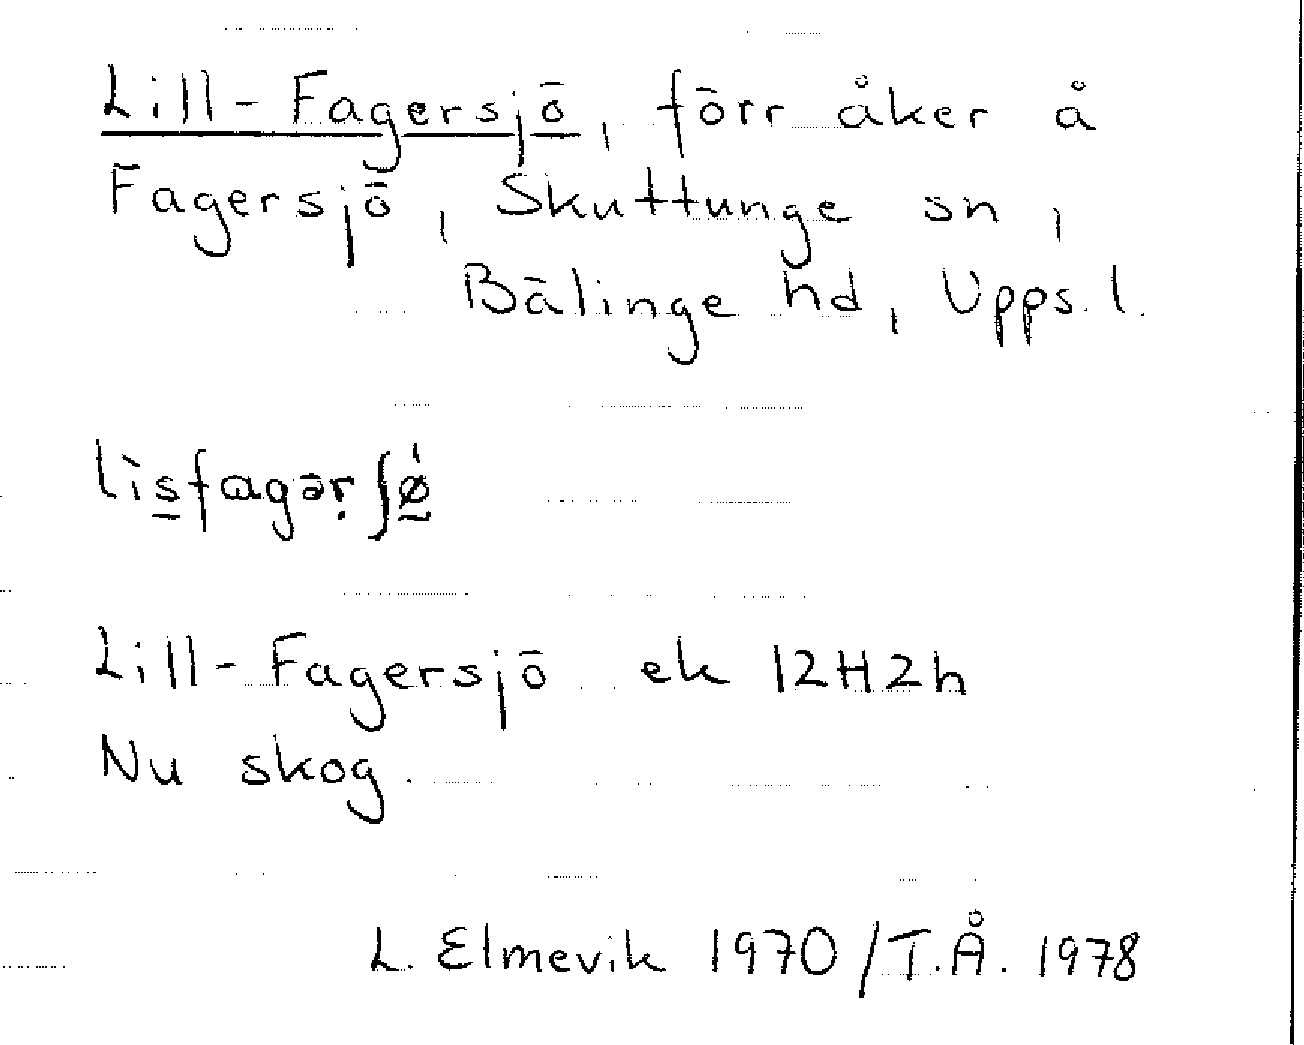 Lill-Fagersjö, förr åker å
Fagersjö, Skuttunge sn,
Bälinge hd, Upps. l.
lìsfagəṛʃǿ
Lill-Fagersjö ek 12H2h
Nu skog.
L. Elmevik 1970/T.Å. 1978